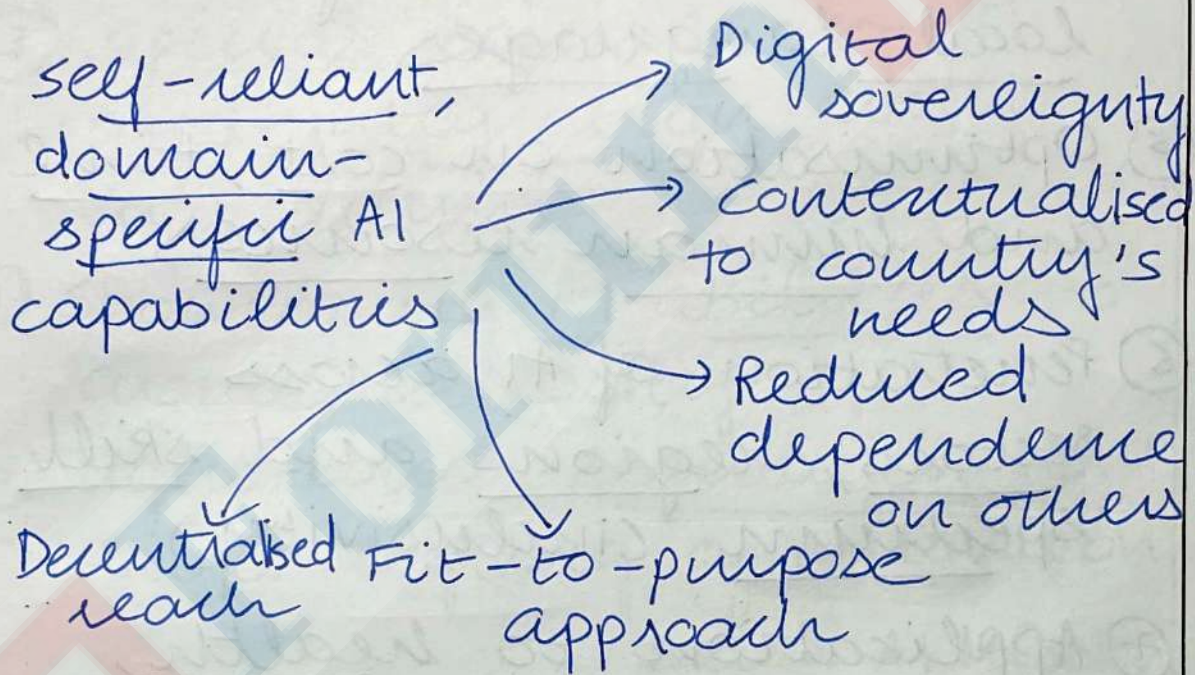 self-reliant,
domain-
specific AI
capabilities
Digital
sovereignty
Contextualised
to country's
needs
Reduced
dependence
on others
Decentralised
reach
Fit-to-purpose
approach
Forum